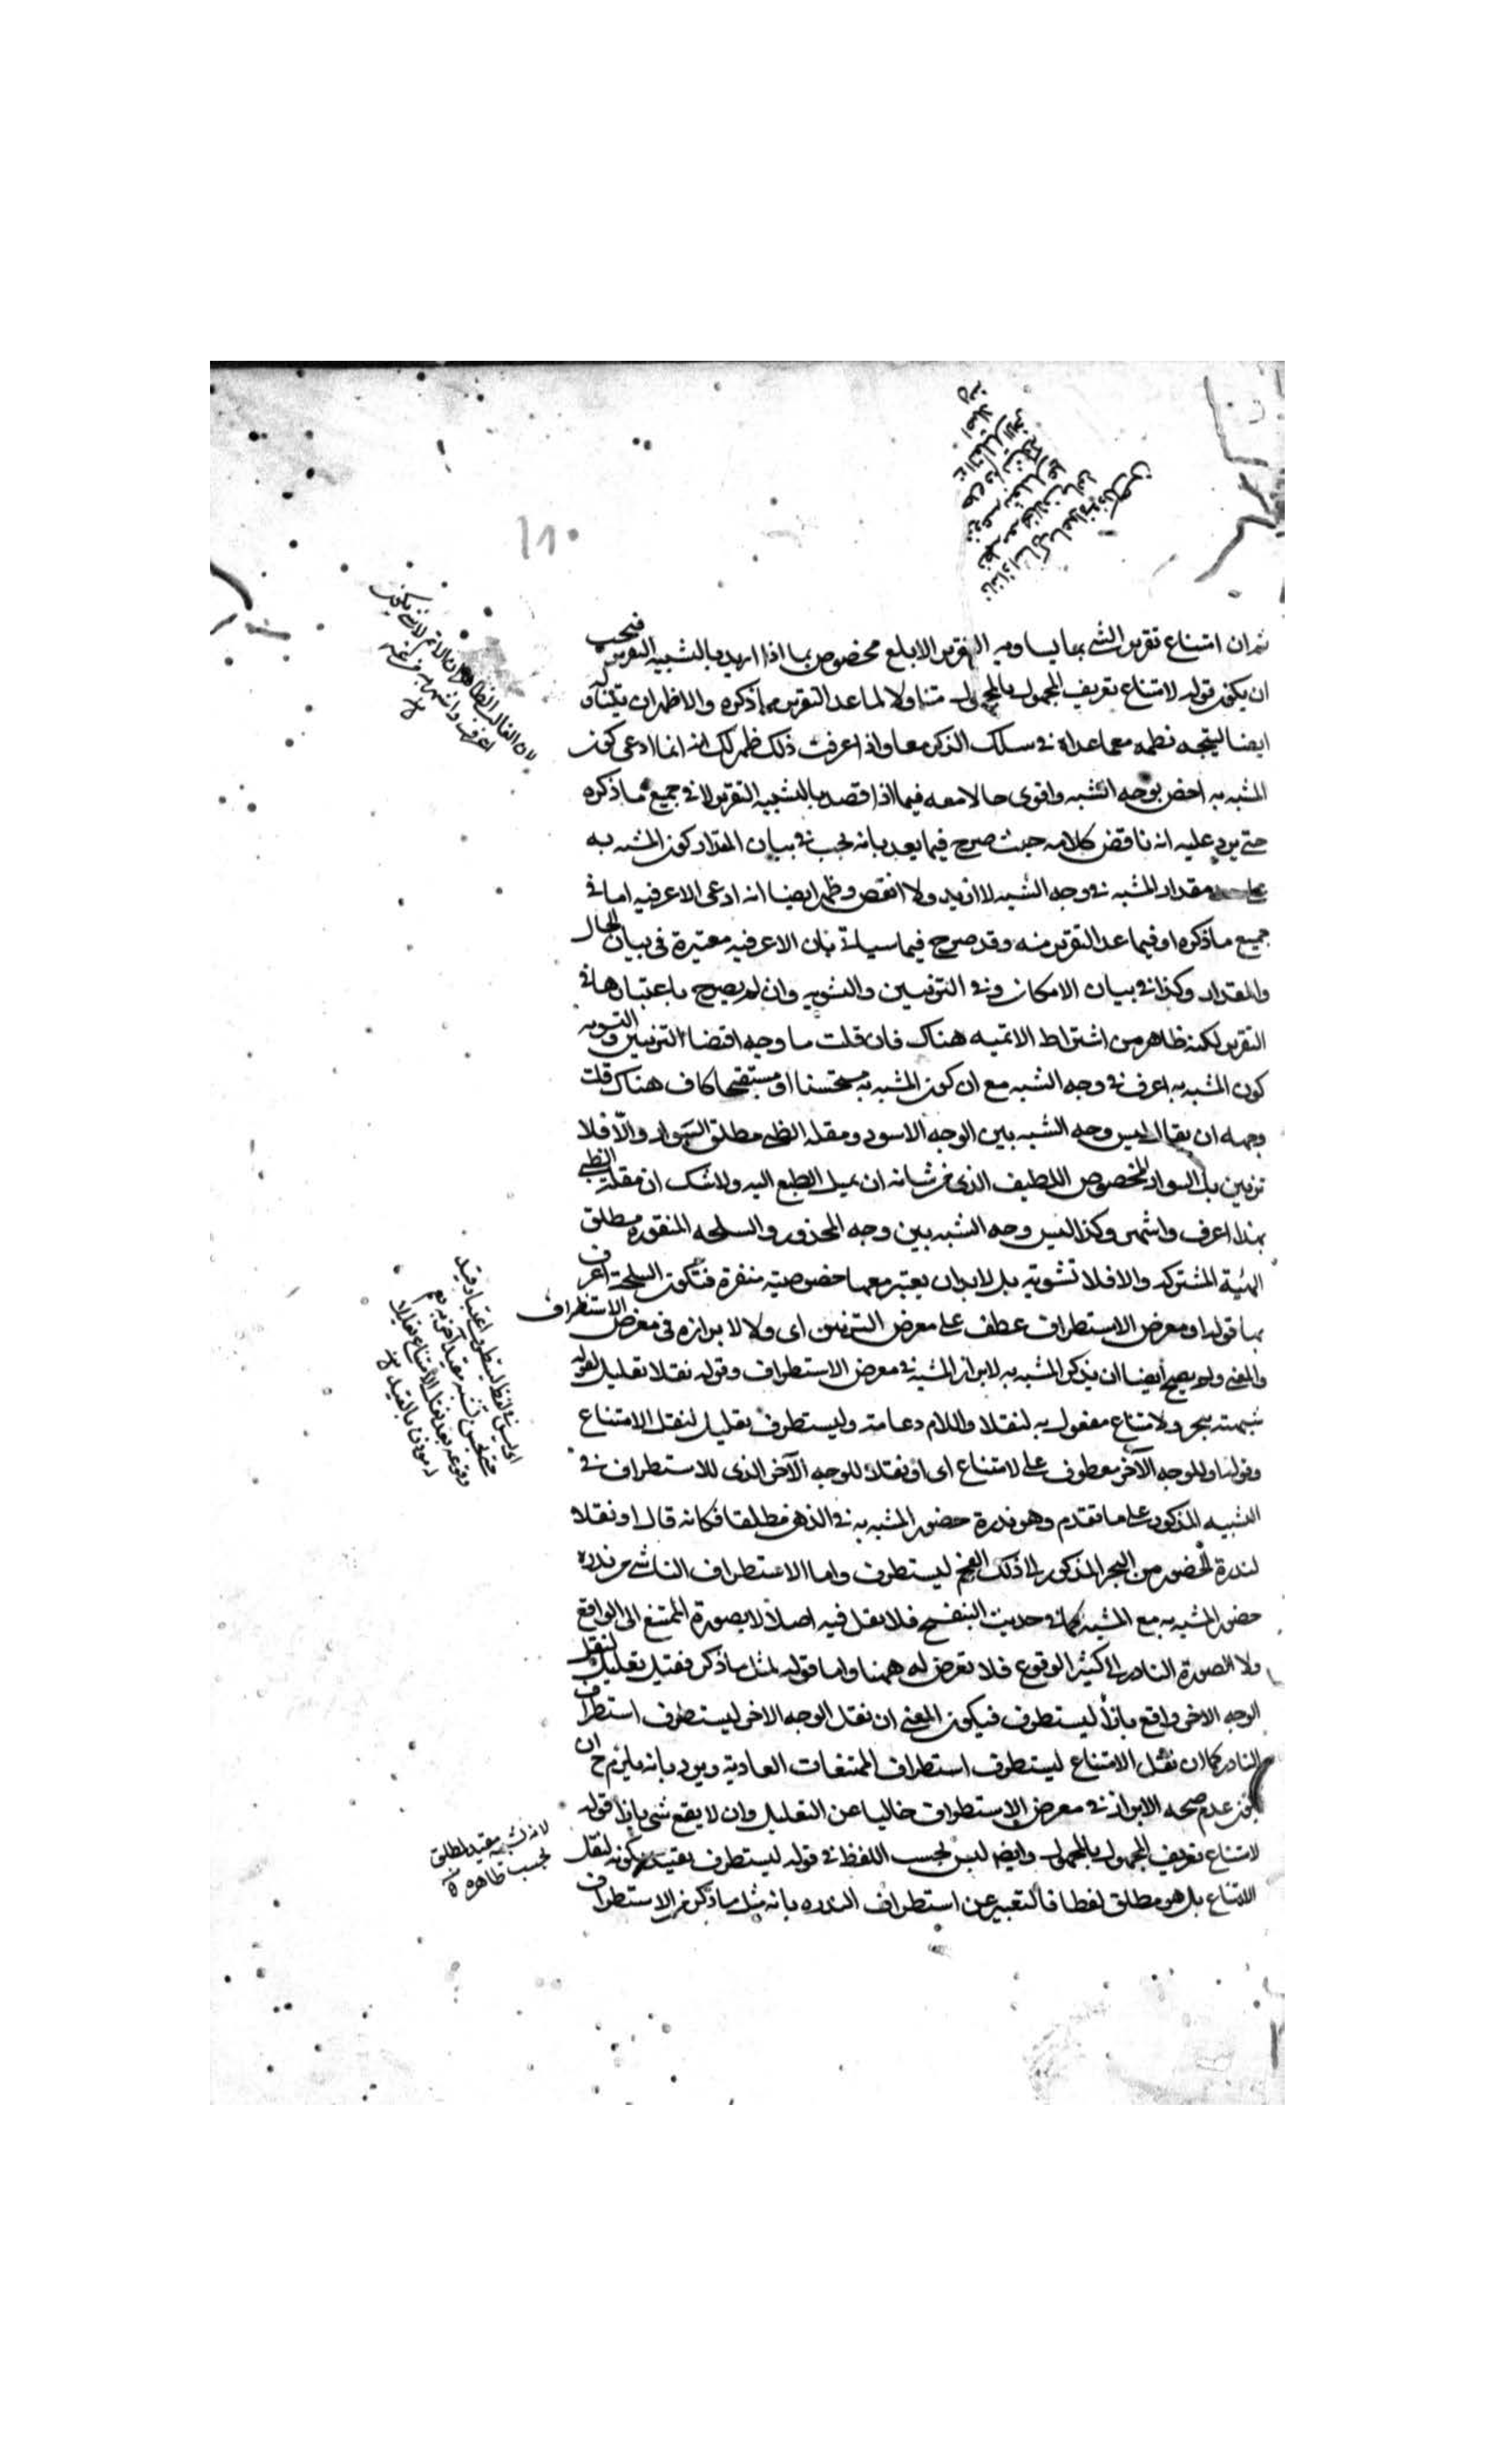 ثم ان امتناع تقرير الشئ بما يساويه التقرير الابلغ مخصوص بما اذا اريد بالتشبيه التقرير فيجب
ان يكون قوله لامتناع تعريف المجهول بالمجهول متناولا لما عدا التقرير مما ذكره والاظهر ان يتناوله
ايضا ليتجه نظمه معما عداه في سلك الذكر معا واذا عرفت ذلك ظهر لك انه انما ادعى كون
المشبه به اخص بوجه الشبه واقوى حالا معه فيما اذا قصد بالتشبيه التقرير لا في جميع ما ذكره
حتى يرد عليه انه ناقض كلامه حيث صرح فيما بعد بانه يجب في بيان المقدار كون المشبه به
على مقدار المشبه في وجه الشبه لا ازيد ولا انقص وظهر ايضا انه ادعى الاعرفيه اما في
جميع ما ذكره او فيما عدا التقرير منه وقد صرح فيما سيأتي بان الاعرفيه معتبرة في بيان الحال
والمقدار وكذا في بيان الامكان وفي التزيين والتشويه وان لم يصرح باعتبارها في
التقرير لكنه ظاهر من اشتراط الاتميه هناك فان قلت ما وجه اقتضاء التزيين والتشويه
كون المشبه به اعرف في وجه الشبه مع ان كون المشبه به مستحسنا او مستقبحا كاف هناك قلت
وجهه ان يقال ليس وجه الشبه بين الوجه الاسود ومقلة الظبي مطلق السواد والا فلا
تزيين بل السواد المخصوص اللطيف الذي من شانه ان يميل الطبع اليه ولا شك ان مقلة الظبي
بهذا اعرف واشهر وكذا ليس وجه الشبه بين وجه المجدور والسلحه المنقوره مطلق
الهيئة المشتركه والا فلا تشويه بل لا بد ان يعتبر معها خصوصية منفرة فتكون السلحة اعرف
بها قوله او معرض الاستطراف عطف على معرض التزيين اى ولا لابرازه في معرض الاستطراف
والمعنى ولم يصح ايضا ان يذكر المشبه به لابراز المشبه في معرض الاستطراف وقوله نقلا تعليل لقوله
شبهته ببحر ولامتناع مفعول به لنقلا واللام دعامة وليستطرف تعليل لنقل الامتناع
وقوله او للوجه الآخر معطوف على لامتناع اى او نقلا للوجه الآخر الذي للاستطراف في
التشبيه المذكور على ما تقدم وهو ندرة حضور المشبه به في الذهن مطلقا فكانه قال او نقلا
لندرة الحضور من البحر المذكور الى ذلك الفحم ليستطرف واما الاستطراف الناشي من ندرة
حضور المشبه به مع المشبه كما في حديث البنفسج فلا نقل فيه اصلا لا بصورة الممتنع الى الواقع
ولا الصورة النادر الى كثير الوقوع فلا تعرض له ههنا واما قوله لمثل ما ذكر فقيل تعليل لنقل
الوجه الاخر واقع بازاء ليستطرف فيكون المعنى ان نقل الوجه الاخر ليستطرف استطراف
النادر كما ان نقل الامتناع ليستطرف استطراف الممتنعات العاديه ويرد بانه يلزم ح ان
عدم صحه الابراز في معرض الاستطراف خاليا عن التعليل وان لا يقع شئ بازاء قوله
لامتناع تعريف المجهول بالمجهول وايضا ليس بحسب اللفظ في قوله ليستطرف تقييد بكونه لنقل
الامتناع بل هو مطلق لفظا فالتعبير عن استطراف الندره بانه مثل ما ذكر من الاستطراف
لان الغالب الظاهر ان الاتم لا بد يكون
اعرف واشهر به من غيره
اى ليس في لفظ ليستطرف اعتبار قيد
حتى يحسن تشبيه مقيد آخر به نعم
وقوعه بعد نقل الامتناع تعليلا
له موذن بالتقييد
لانه تشبيه مقيد بمطلق
بحسب ظاهره